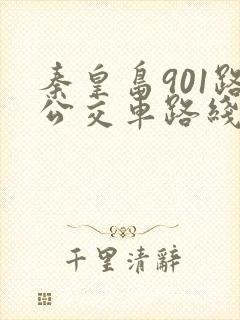 秦皇岛901路
公交车路线
千里清辞